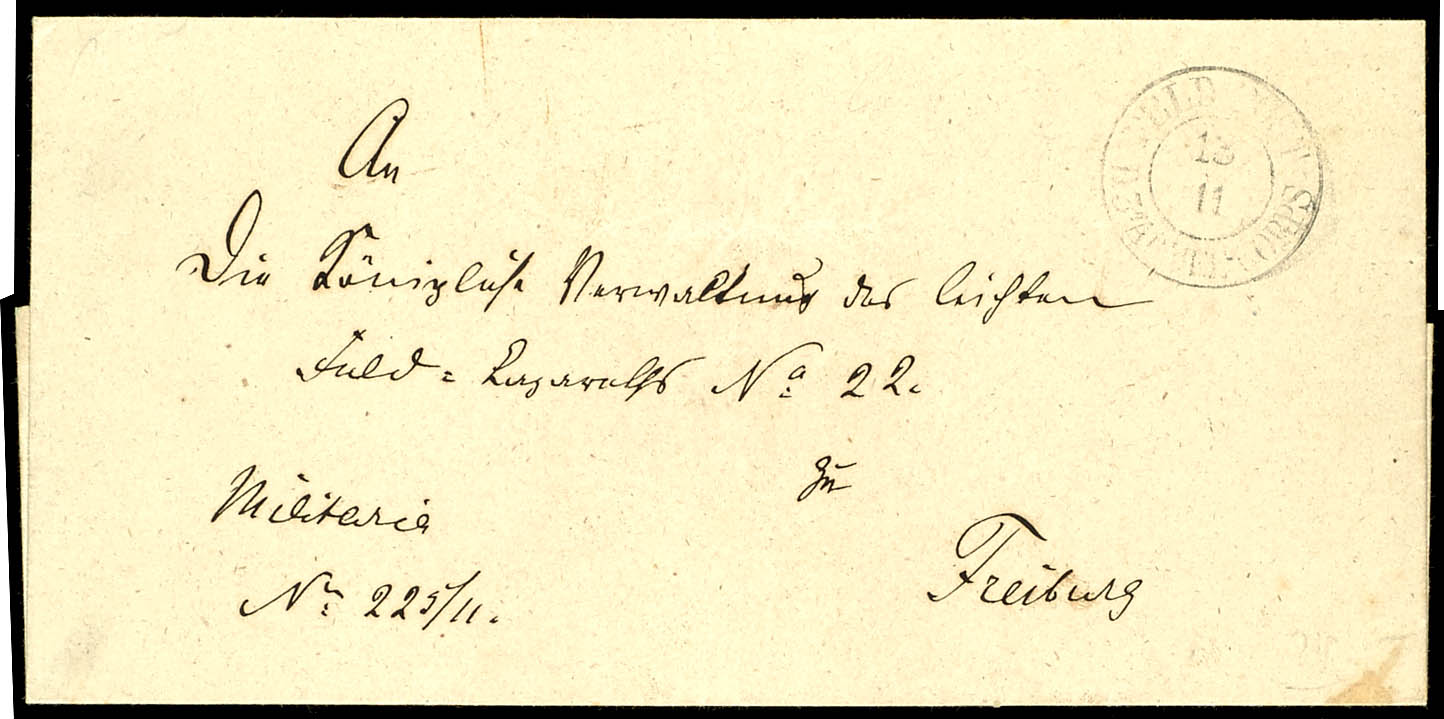 An
Die Königliche Verwaltung des leichten
Feld = Lazareths No 22.
zu
Freiburg
Militaria
Nr. 225/11.
FELD-POST
13
11
CORPS